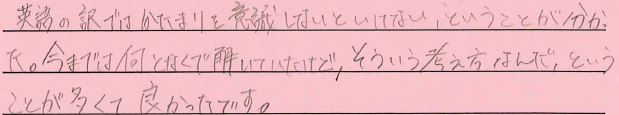 英語の訳ではかたまりを意識しないといけない、ということが分かっ
た。今までは何となくで解いていたけど、そういう考え方なんだ、という
ことが多くて良かったです。